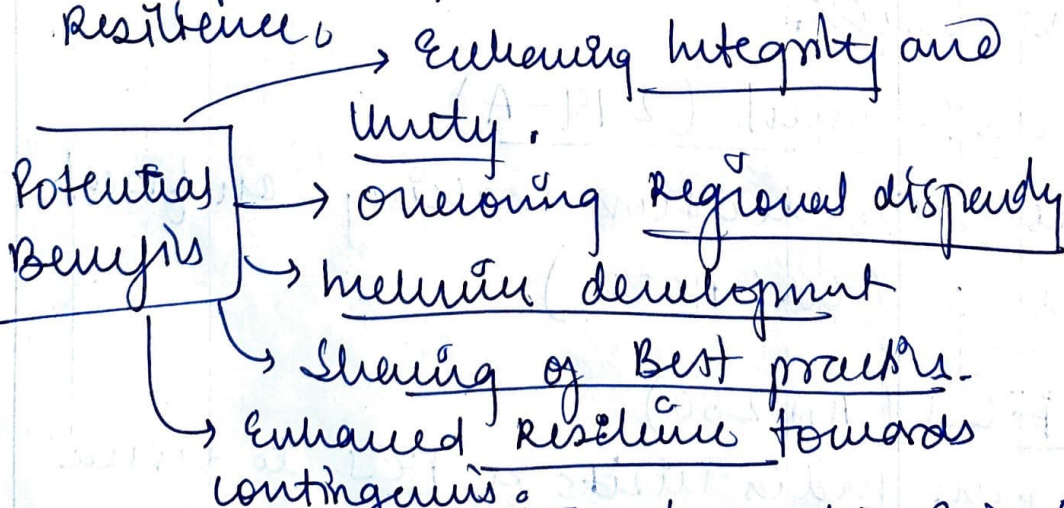 Resilience.
→ Enhancing Integrity and
Unity.
Potential
Benefits
→ Overcoming Regional disparity
→ Inclusive development
→ Sharing of Best practices.
→ Enhanced Resilience towards
contingencies.